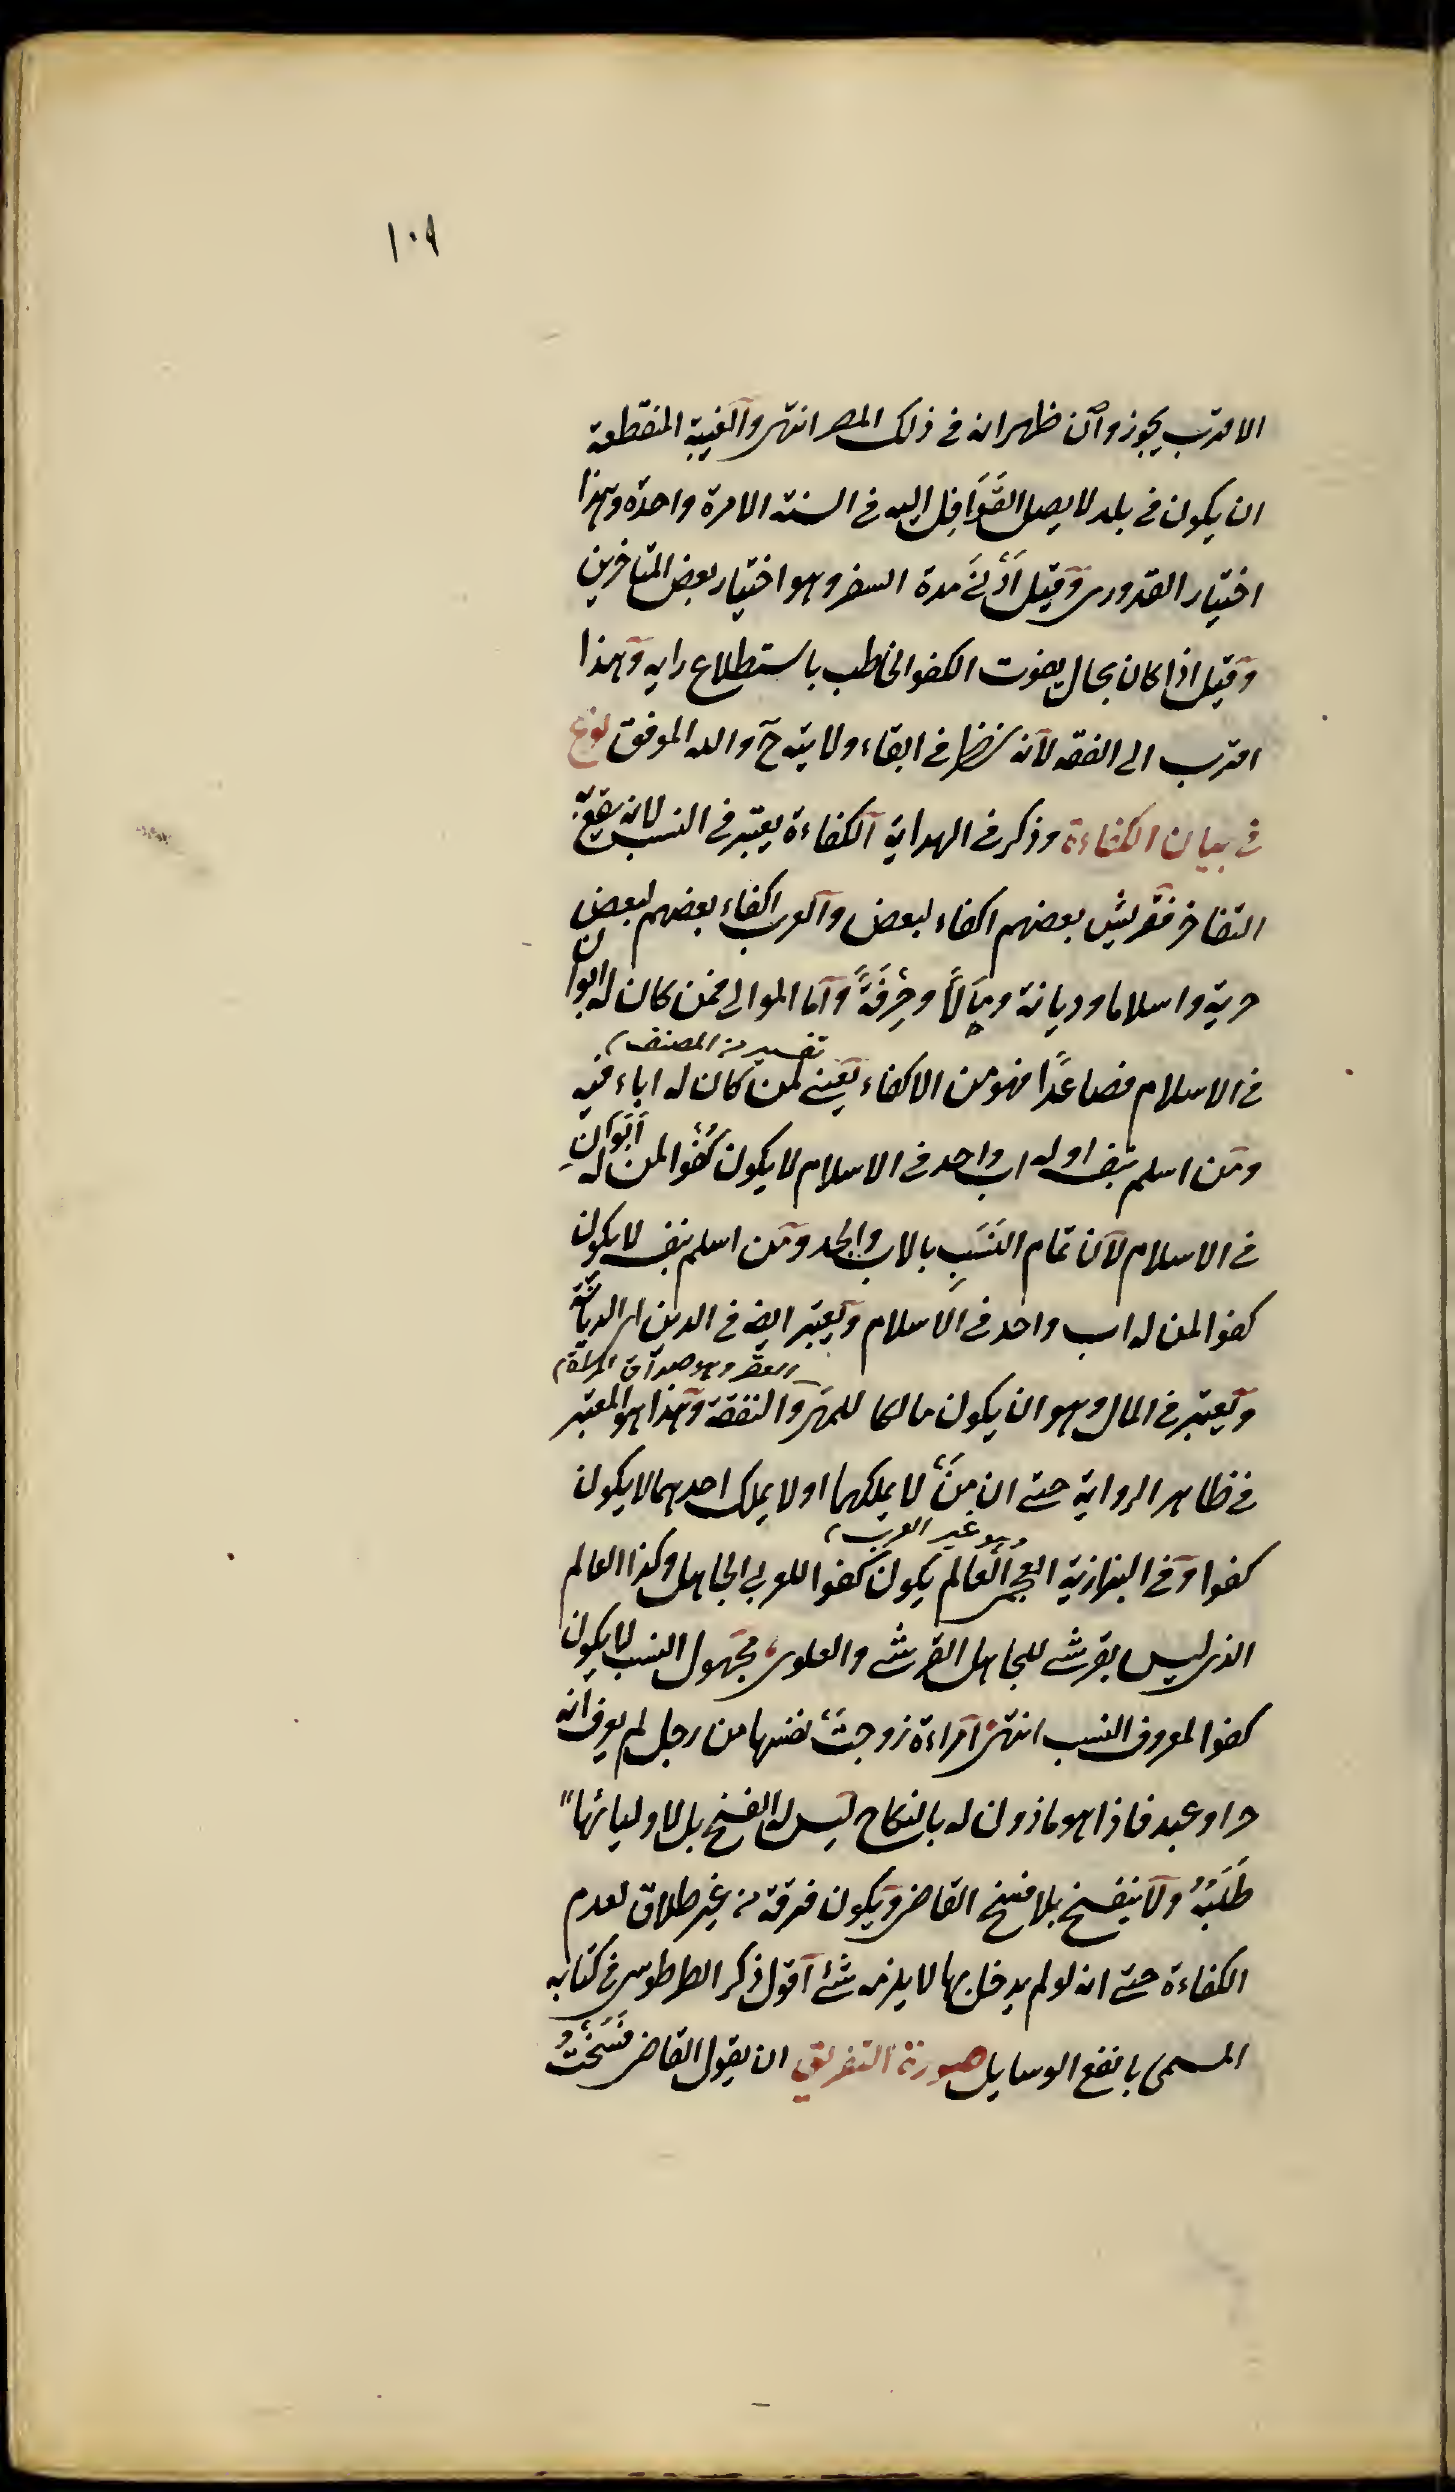 ١٠٩
الاقرب يجوز وان ظهر انه فى ذلك المصر انتهى والغيبة المنقطعة
ان يكون فى بلد لا يصل القَوَافِل اليه فى السنة الا مرة واحدة وهذا
اختيار القدورى وقيل اَدْنَى مدة السفر وهو اختيار بعض المتاخرين
وقيل اذا كان بحال يفوت الكفو الخاطب باستطلاع رايه وهذا
اقرب الى الفقه لانه نظر فى ابقاء ولايته ح والله الموفق نوع
فى بيان الكفاءة وذكر فى الهداية الكفاءة يعتبر فى النسب لانه يقع به
التفاخر فقريش بعضهم اكفاء لبعض والعرب اكفاء بعضهم لبعض
حرية واسلاما وديانة ومَالاً وحِرْفَةً واما الموالى فمن كان له ابوان
تفسير من المصنف
فى الاسلام فصاعدًا فهو من الاكفاء يعنى لمن كان له اباء فيه
ومن اسلم بنفسه او له اب واحد فى الاسلام لا يكون كُفْوا لمن له اَبَوَانِ
فى الاسلام لان تمام النَسَبِ بالاب والجد ومن اسلم بنفسه لا يكون
كفوا لمن له اب واحد فى الاسلام ويعتبر ايضا فى الدين اى الديانة
العقر وهو صداق المراة
ويعتبر فى المال وهو ان يكون مالكا للمهر والنفقة وهذا هو المعتبر
فى ظاهر الرواية حتى ان مَنْ لا يملكهما او لا يملك احدهما لا يكون
وهو غير العرب
كفوا وفى البزازية العجمى العالم يكون كفوا للعربى الجاهل وكذا العالم
الذى ليس بقرشى للجاهل القرشى والعلوى مجهول النسب لا يكون
كفوا لمعروف النسب انتهى امراءة زوجت نفسها من رجل لم يعرف انه
حر او عبد فاذا هو ماذون له بالنكاح ليس لها الفسخ بل لاوليائها
طَلَبُهُ ولا ينفسخ بلا فسخ القاضى ويكون فرقة من غير طلاق لعدم
الكفاءة حتى انه لو لم يدخل بها لا يلزمه شئ اقول ذكر الطرطوسى فى كتابه
المسمى بانفع الوسايل صورة التفريق ان يقول القاضى فَسَخْتُ